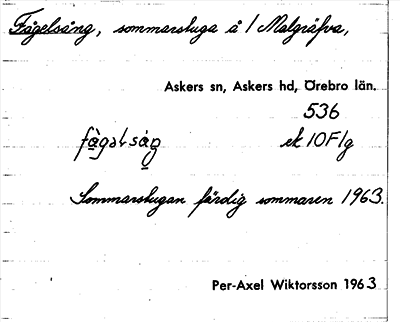 Fågelsång, sommarstuga å 1 Malgräfva,
Askers sn, Askers hd, Örebro län.
536
fågəlsåŋ ek 10F1g
Sommarstugan färdig sommaren 1963.
Per-Axel Wiktorsson 1963